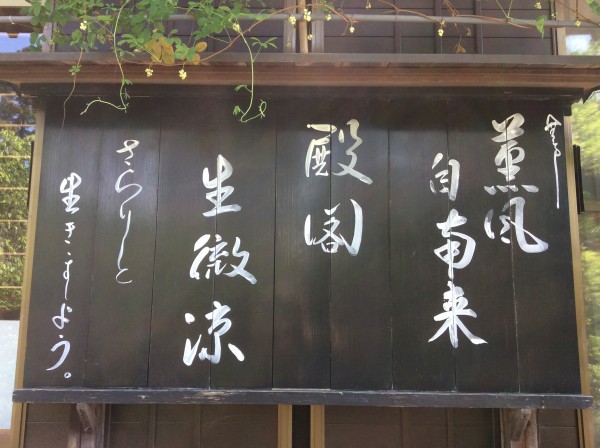 薫風
自南来
殿閣
生微涼
さらりと
生きましょう。